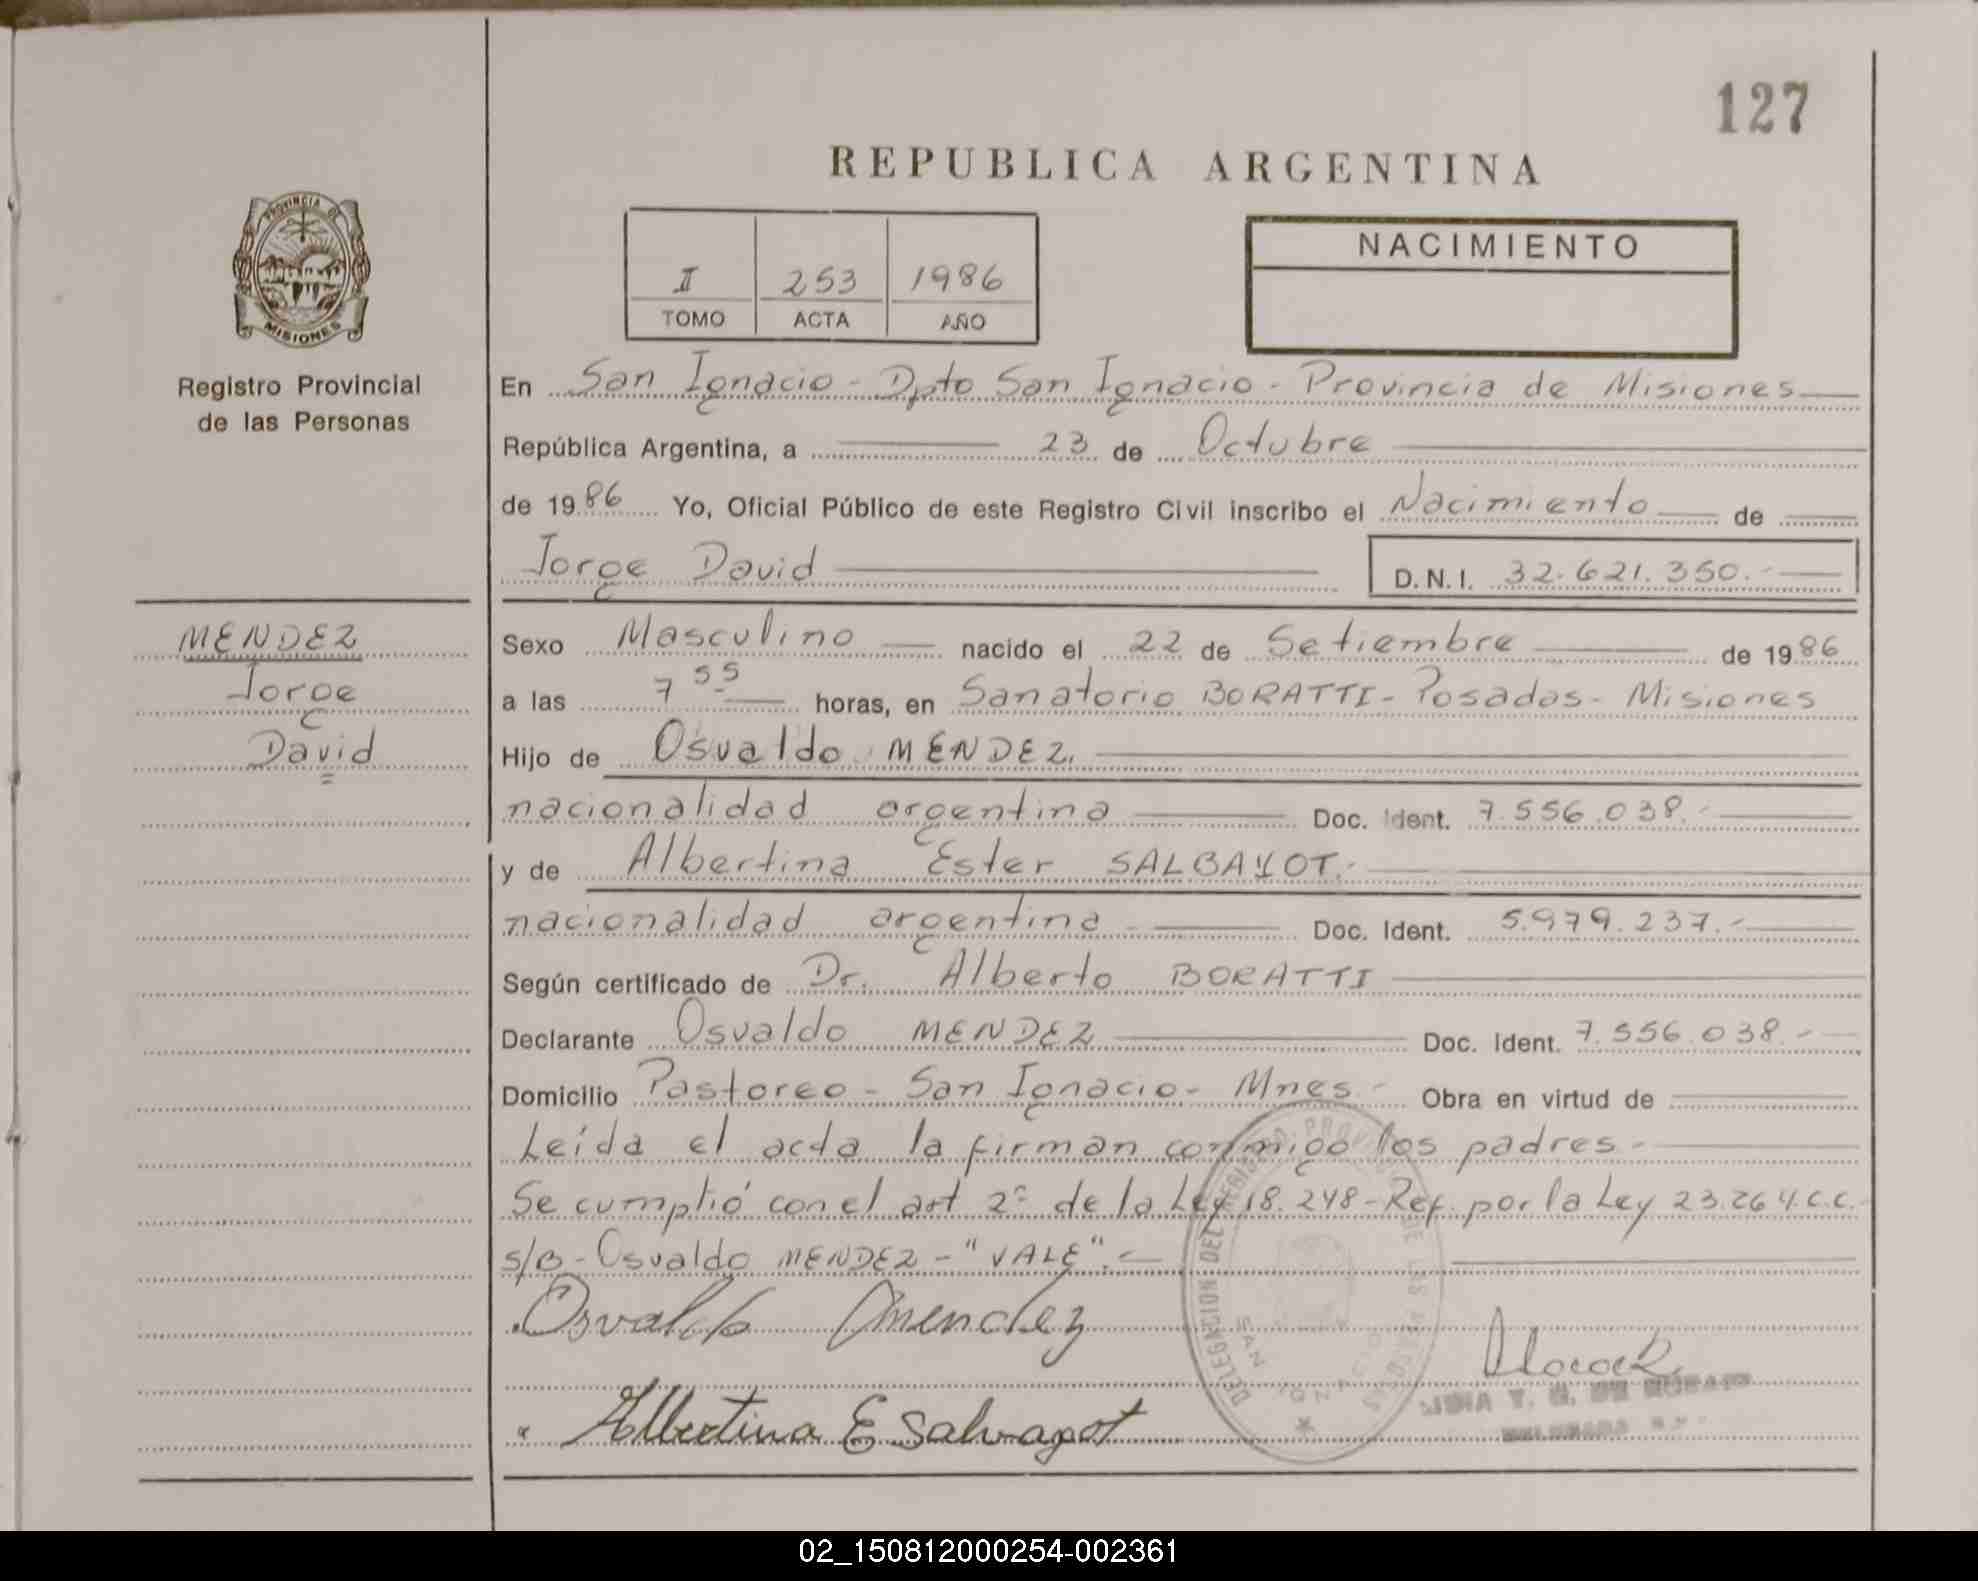 127
REPUBLICA ARGENTINA
PROVINCIA DE
MISIONES
Registro Provincial
de las Personas
II 253 1986
TOMO ACTA AÑO
NACIMIENTO
En San Ignacio - Dpto San Ignacio - Provincia de Misiones
República Argentina, a 23 de Octubre
de 1986 Yo, Oficial Público de este Registro Civil inscribo el Nacimiento de
Jorge David D.N.I. 32.621.350.-
MENDEZ
Jorge
David
Sexo Masculino nacido el 22 de Setiembre de 1986
a las 7 55 horas, en Sanatorio BORATTI - Posadas - Misiones
Hijo de Osvaldo MENDEZ.
nacionalidad argentina Doc. Ident. 7.556.038.-
y de Albertina Ester SALBAYOT.-
nacionalidad argentina Doc. Ident. 5.979.237.-
Según certificado de Dr. Alberto BORATTI
Declarante Osvaldo MENDEZ Doc. Ident. 7.556.038.-
Domicilio Pastoreo - San Ignacio - Mnes - Obra en virtud de
Leída el acta la firman conmigo los padres.-
Se cumplió con el art 2º de la Ley 18.248 - Ref. por la Ley 23.264.C.C.-
S/B - Osvaldo MENDEZ - "VALE".-
Osvaldo Mendez
Albertina E Salvagot
DELEGACION DEL REGISTRO PROVINCIAL DE LAS PERSONAS
SAN IGNACIO
02_150812000254-002361